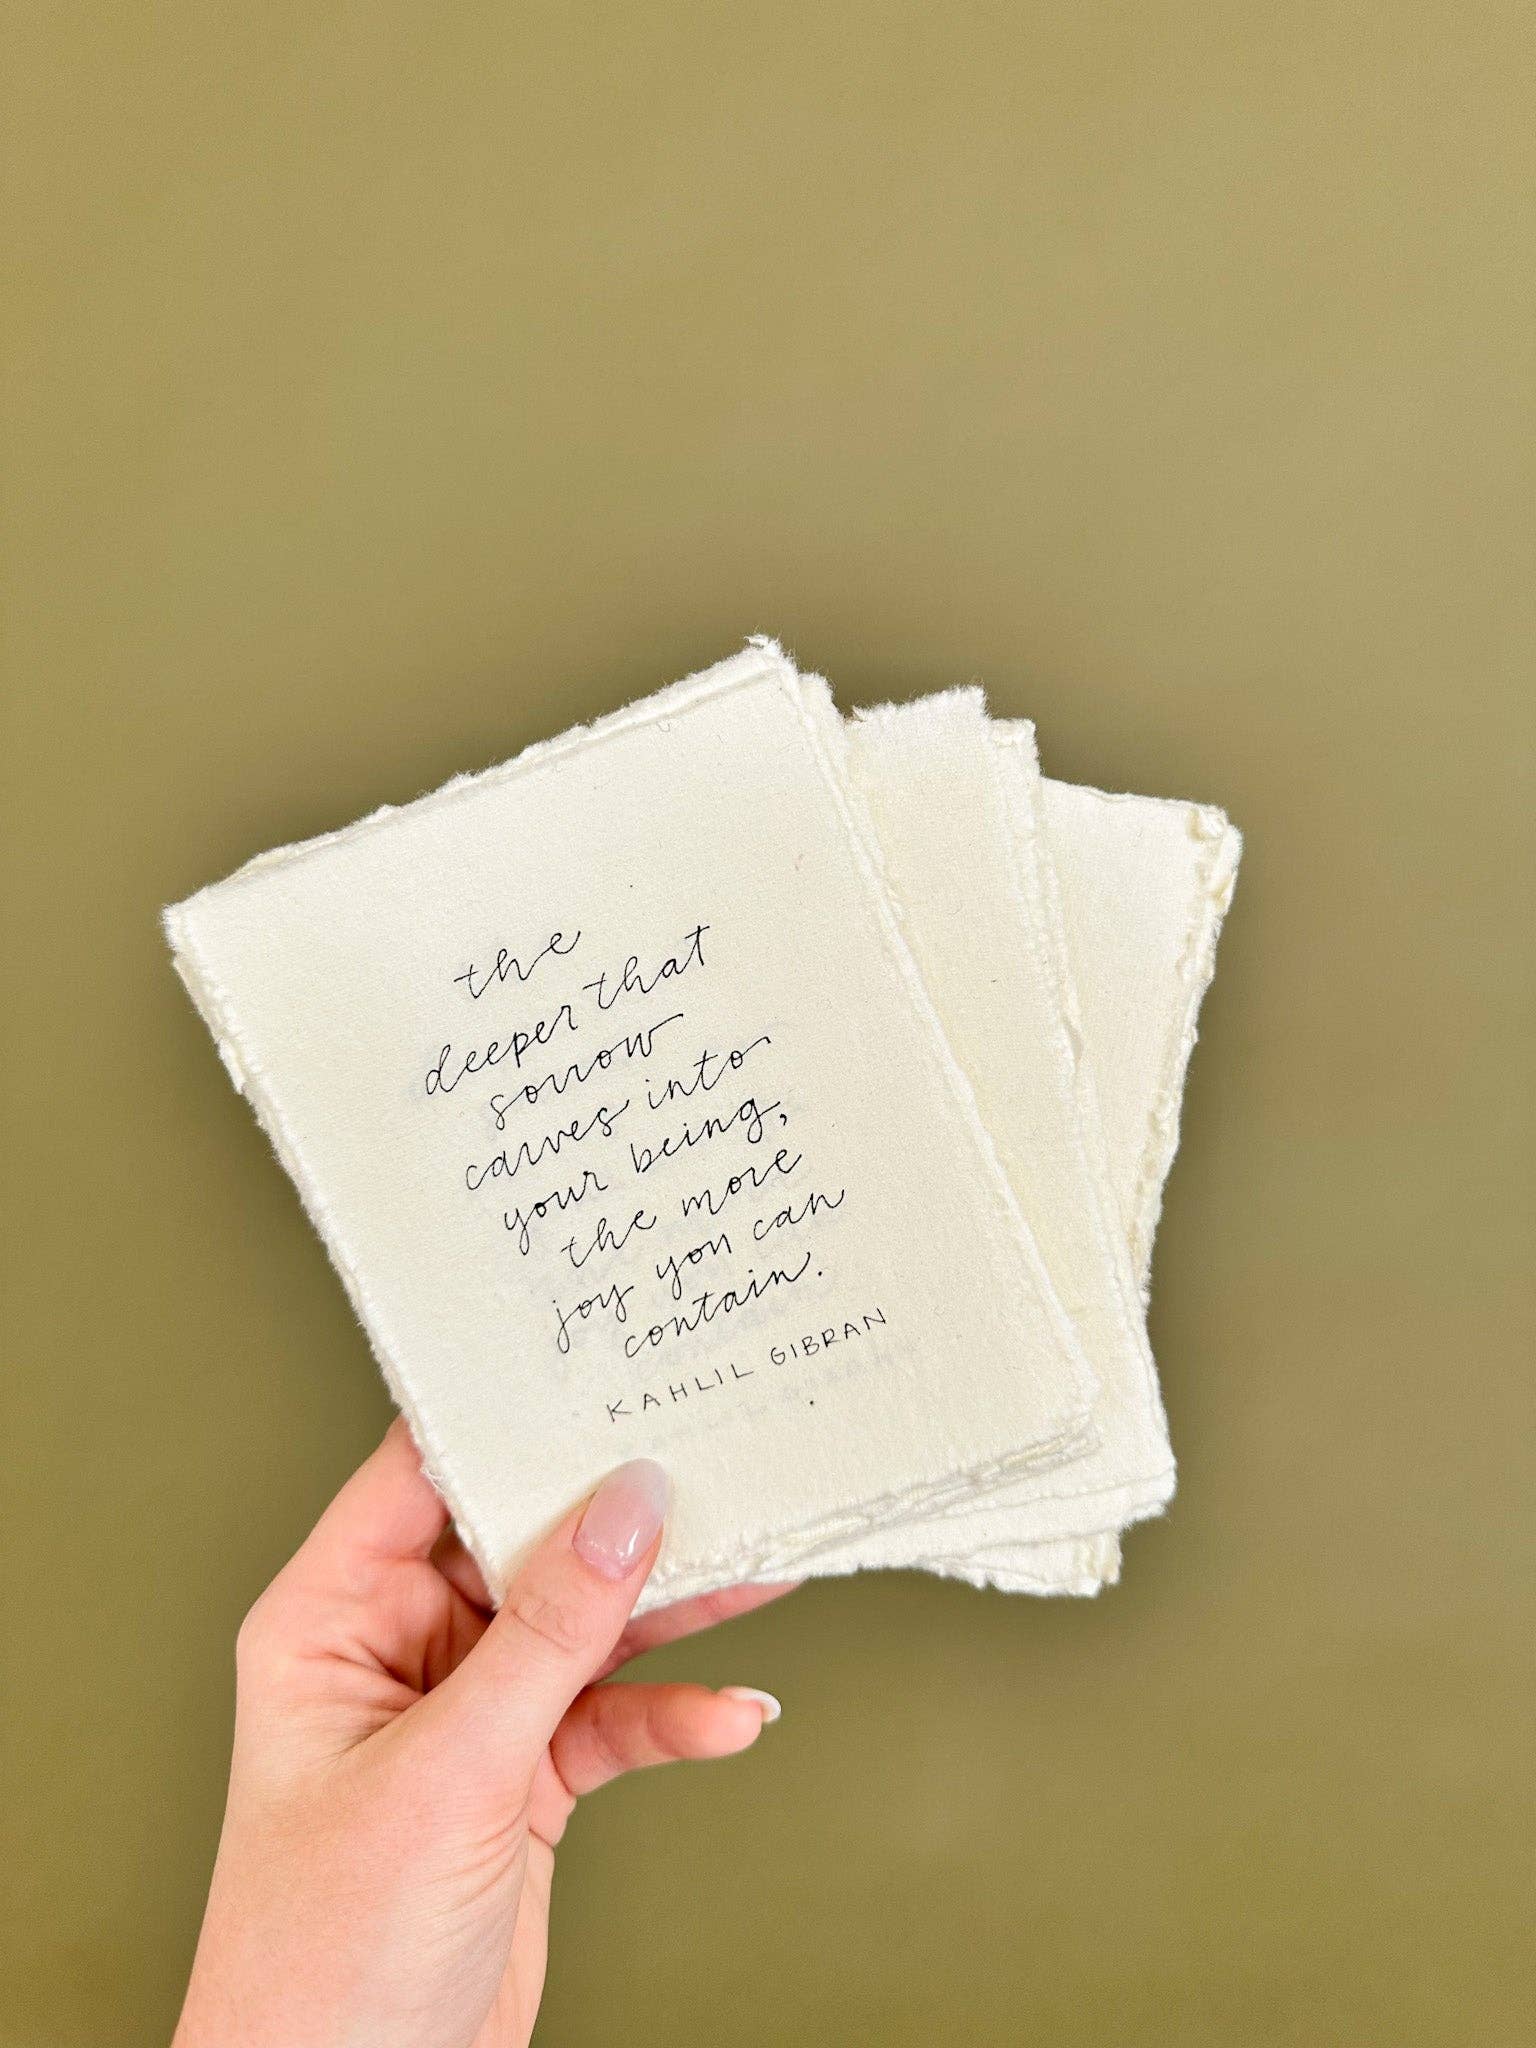 the
deeper that
sorrow
carves into
your being,
the more
joy you can
contain.
KAHLIL GIBRAN